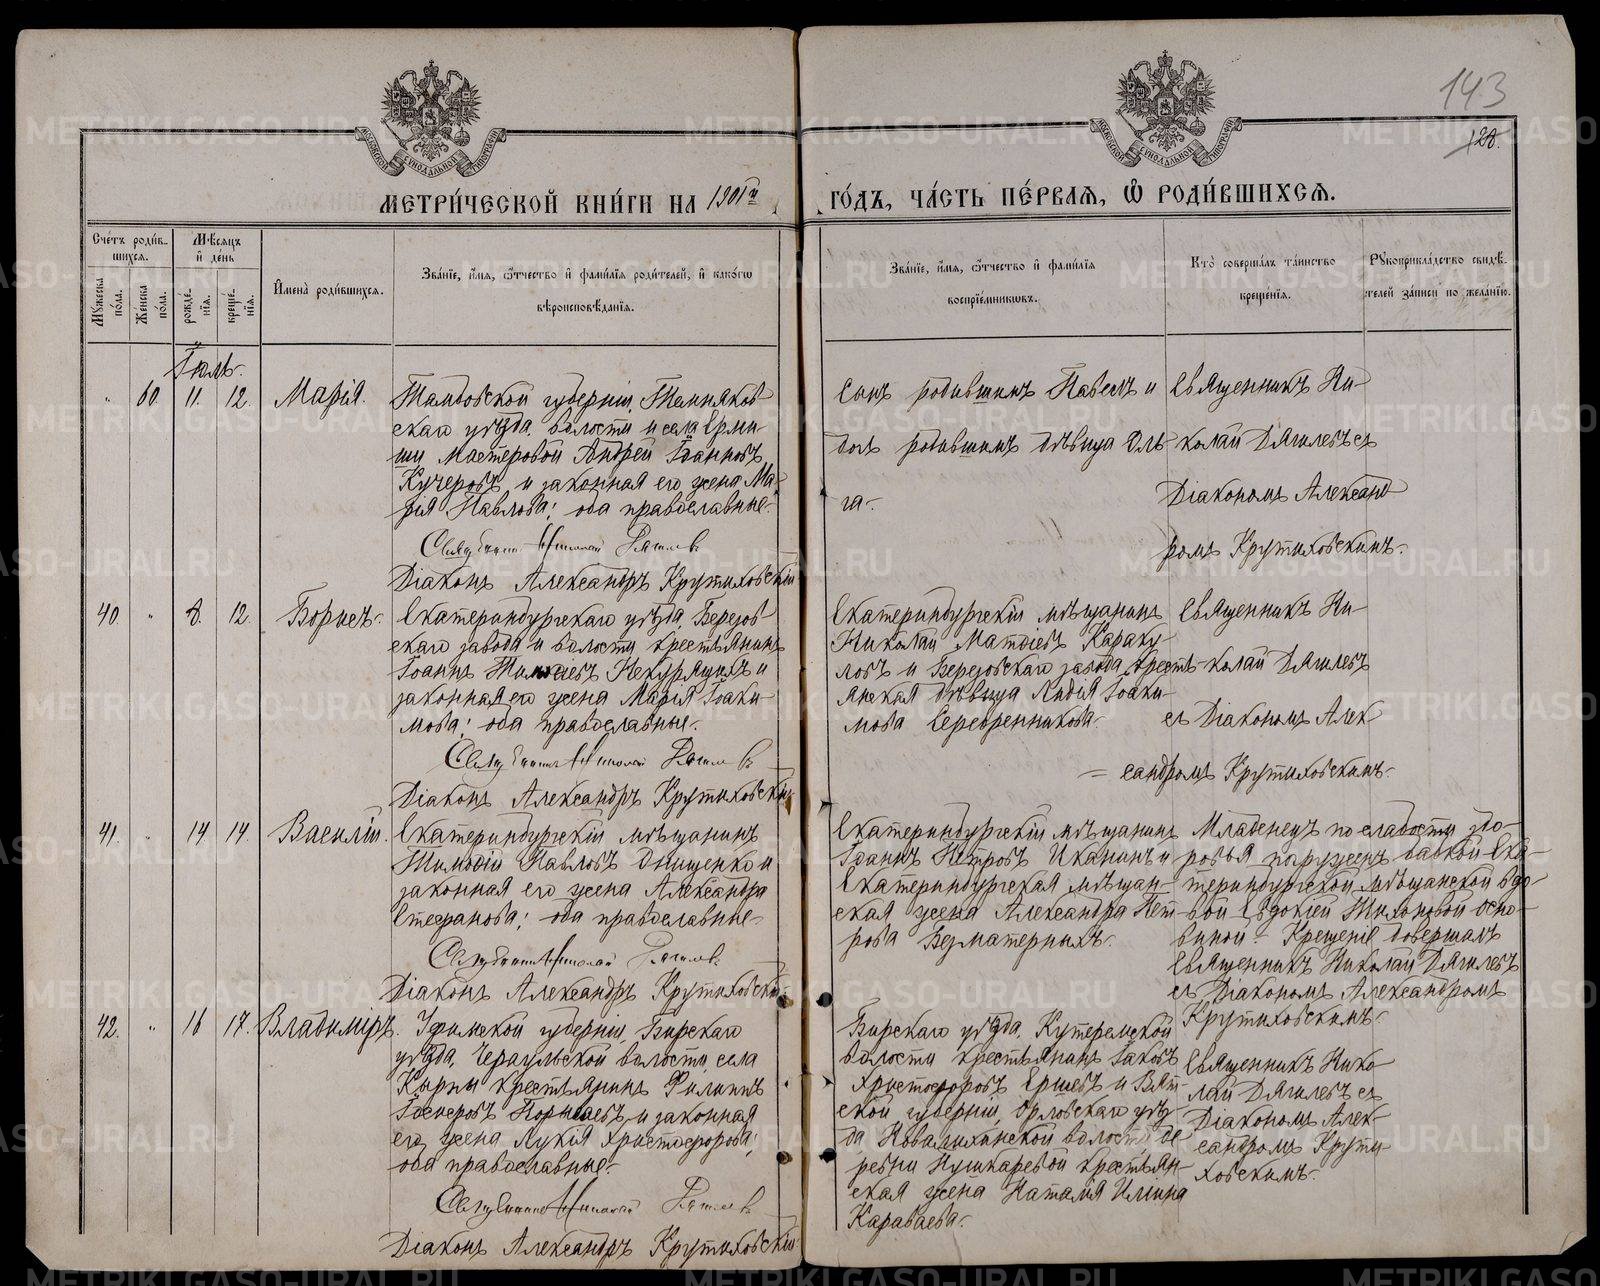 143
128.
МЕТРИ́ЧЕСКОЙ КНИ́ГИ НА 1901й
ГО́ДЪ, ЧА́СТЬ ПЕ́РВАЯ, Ѽ РОДИ́ВШИХСЯ.
Сче́тъ роди́в-
шихся.
Мужеска по́ла.
Же́нска по́ла.
Мѣ́сяцъ
и де́нь
рожде́-
нїя.
креще́-
нїя.
Имена̀ роди́вшихся.
Зва́нїе, и́мя, ѻ́тчество и фами́лїя роди́телей, и како́гѡ
вѣроисповѣ́данїя.
Зва́нїе, и́мя, ѻ́тчество и фами́лїя
воспрїе́мникѡвъ.
Кто̀ соверша́лъ та́инство
креще́нїя.
Рукоприкла́дство свидѣ́-
телей за́писи по жела́нїю.
Іюль.
" 60. 11. 12. Марія.
Тамбовской губерніи, Темняков
скаго уѣзда, волости и села Ерми-
ши мастеровой Андрей Іоанновъ
Кучеровъ и законная его жена Ма-
рія Павлова; оба православные.
Священникъ Николай Дягилевъ
Діаконъ Александръ Крутиховскій
Сынъ родившимъ Павелъ и
дочь родившимъ дѣвица Оль-
га.
Священникъ Ни-
колай Дягилевъ съ
Діакономъ Александ
ромъ Крутиховскимъ.
40. " 8. 12. Борисъ.
Екатеринбургскаго уѣзда, Березов
скаго завода и волости крестьянинъ
Іоаннъ Некурящихъ и
законная его жена Марія Іоаки-
мова; оба православные.
Священникъ Николай Дягилевъ
Діаконъ Александръ Крутиховскій
Екатеринбургскій мѣщанинъ
Николай Матѳіевъ Караку-
ловъ и Березовскаго завода кресть-
янская дѣвица Лидія Іоаки-
мова Серебренникова.
Священникъ Ни-
колай Дягилевъ
съ Діакономъ Алек
= сандромъ Крутиховскимъ.
41. " 14 14. Василій.
Екатеринбургскій мѣщанинъ
Тимоѳій Павловъ Онищенко и
законная его жена Александра
Стефанова; оба православные.
Священникъ Николай Дягилевъ
Діаконъ Александръ Крутиховскій
Екатеринбургскій мѣщанинъ
Іоаннъ Петровъ Иканинъ и
Екатеринбургская мѣщан-
ская жена Александра Пет-
рова Безматерныхъ.
Младенецъ по слабости здо-
ровья погруженъ бабкой Ека-
теринбургской мѣщанской вдо-
вой Евдокіей Тихоновой Осно-
виной. Крещеніе довершалъ
Священникъ Николай Дягилевъ
съ Діакономъ Александромъ
Крутиховскимъ.
42. " 16 17. Владиміръ.
Уфимской губерніи, Бирскаго
уѣзда, Чераульской волости, села
Кырпы крестьянинъ Филиппъ
и законная
его жена Лукія Христофорова;
оба православные.
Священникъ Николай Дягилевъ
Діаконъ Александръ Крутиховскій
Бирскаго уѣзда, Кутеремской
волости крестьянинъ Іаковъ
Христофоровъ Ершевъ и Вят-
ской губерніи, Орловскаго уѣз
да, Ковалиханской волости, де-
ревни Пушкаревой крестьян-
ская жена Наталія Ильина
Караваева.
Священникъ Нико-
лай Дягилевъ съ
Діакономъ Алек-
сандромъ Крути-
ховскимъ.